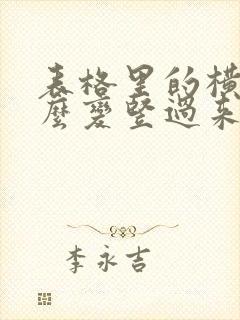 表格里的横
麼變竪過来
李永吉